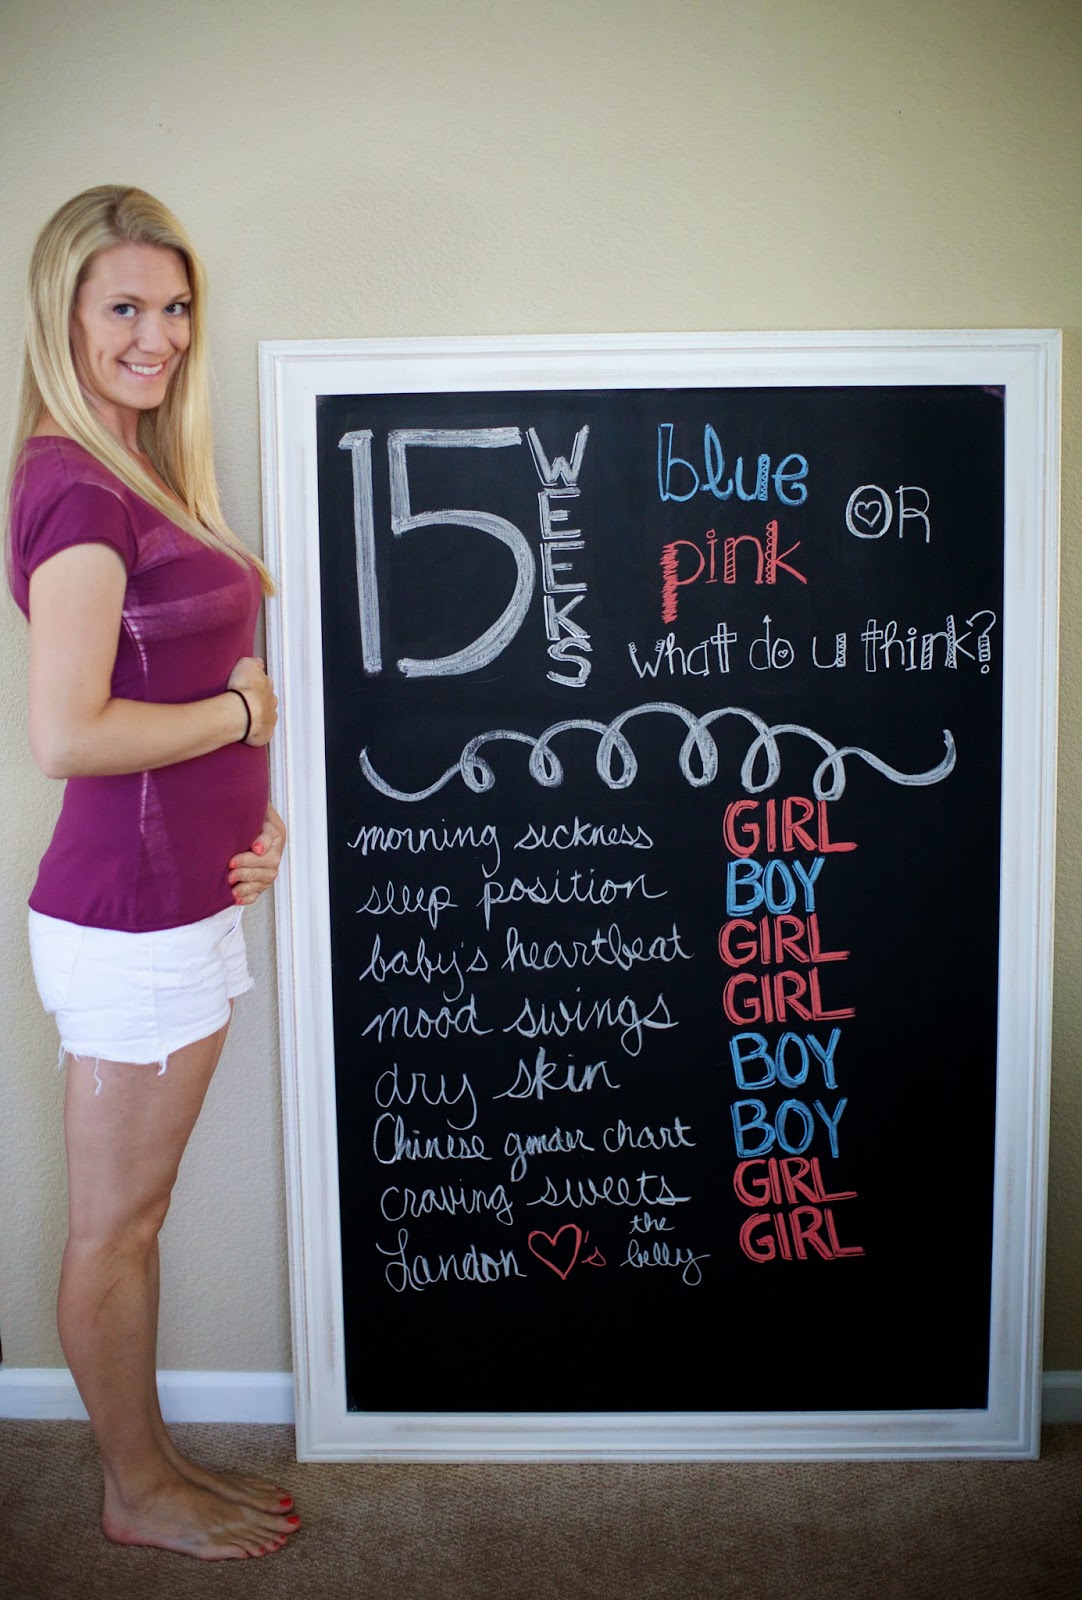 15 WEEKS
blue OR
pink
what do u think?
morning sickness GIRL
sleep position BOY
baby's heartbeat GIRL
mood swings GIRL
dry skin BOY
Chinese gender chart BOY
craving sweets GIRL
Landon ♥'s the belly GIRL